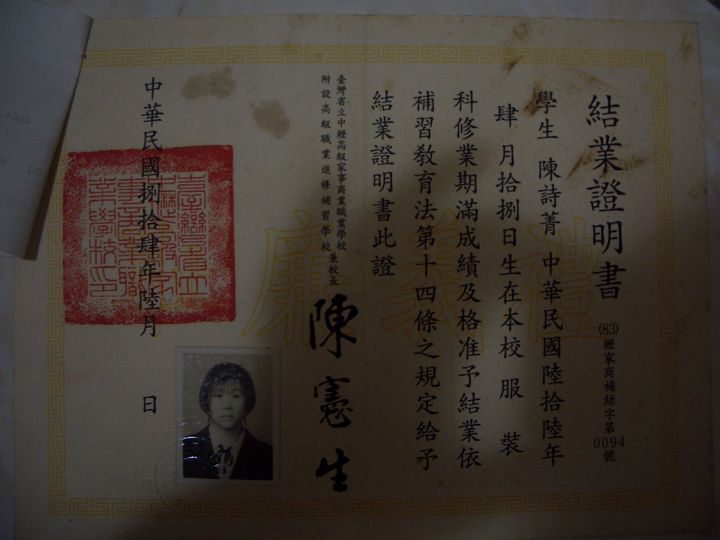 結業證明書
(83)壢家商補結字第0094號
學生 陳詩菁 中華民國陸拾陸年
肆月拾捌日生在本校 服裝
科修業期滿成績及格准予結業依
補習教育法第十四條之規定給予
結業證明書此證
臺灣省立中壢高級家事商業職業學校
附設高級職業進修補習學校 兼校長
陳憲生
中華民國捌拾肆年陸月 日
禮義廉